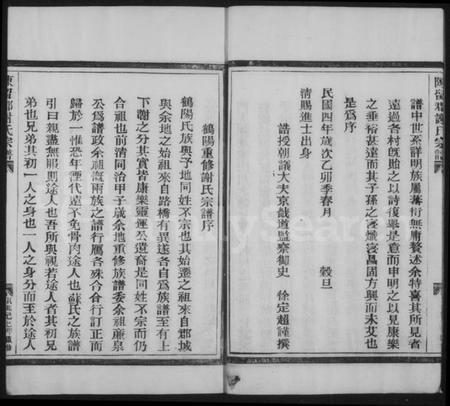 陳留郡謝氏宗譜
譜中世系詳明族屬蕃衍無庸贅述余特喜其所見者
遠過各村既助之以詩復舉是意而申明之以見康樂
之垂裕甚遠而其子孫之熾寖昌固方興而未艾也
是爲序
民國四年歲次乙卯季春月 穀旦
清賜進士出身
誥授朝議大夫京畿道監察御史 徐定超謹撰
鶴陽重修謝氏宗譜序
鶴陽氏族與子地同姓不宗也其始遷之祖來自郡城
與余地之始祖來自路橋有異遂各自爲族譜至有上
下謝之分其實皆康樂靈運公遺裔是同姓不宗而仍
合祖也前清同治甲子歲余地重修族譜委余祖簾泉
公爲譜政余祖慨兩族之譜行屬各殊合食行訂正而
歸於一惟恐年湮代遠不免骨肉途人也蘇氏之族譜
引曰親盡無服則途人也吾所與視若途人者其初兄
弟也兄弟其初一人之身也一人之身分而至於途人
陳留郡謝氏宗譜